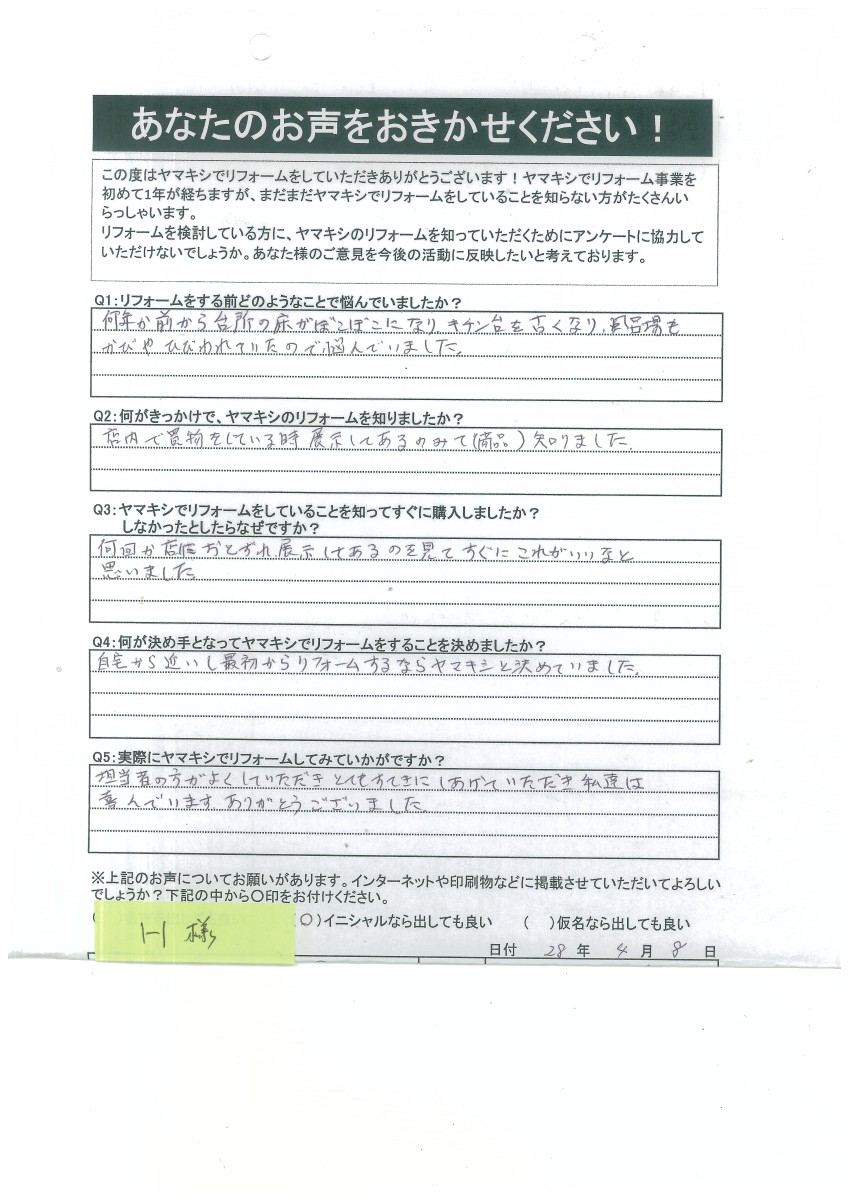 あなたのお声をおきかせください！
この度はヤマキシでリフォームをしていただきありがとうございます！ヤマキシでリフォーム事業を
初めて1年が経ちますが、まだまだヤマキシでリフォームをしていることを知らない方がたくさんい
らっしゃいます。
リフォームを検討している方に、ヤマキシのリフォームを知っていただくためにアンケートに協力して
いただけないでしょうか。あなた様のご意見を今後の活動に反映したいと考えております。
Q1：リフォームをする前どのようなことで悩んでいましたか？
何年か前から台所の床がぼこぼこになり キチン台を古くなり、風呂場も
かびやひびわれていたので悩んでいました。
Q2：何がきっかけで、ヤマキシのリフォームを知りましたか？
店内で買物をしている時 展示してあるのみて(商品)知りました。
Q3：ヤマキシでリフォームをしていることを知ってすぐに購入しましたか？
しなかったとしたらなぜですか？
何回か店に おとずれ 展示してあるのを見て すぐに これがいいなと
思いました
Q4：何が決め手となってヤマキシでリフォームをすることを決めましたか？
自宅から近いし最初からリフォームするならヤマキシと決めていました。
Q5：実際にヤマキシでリフォームしてみていかがですか？
担当者の方がよくしていただき とてもすてきに しあげていただき 私達は
喜んでいます。ありがとうございました。
※上記のお声についてお願いがあります。インターネットや印刷物などに掲載させていただいてよろしい
でしょうか？下記の中から〇印をお付けください。
(〇)イニシャルなら出しても良い (　)仮名なら出しても良い
H 様
日付 28 年 4 月 8 日